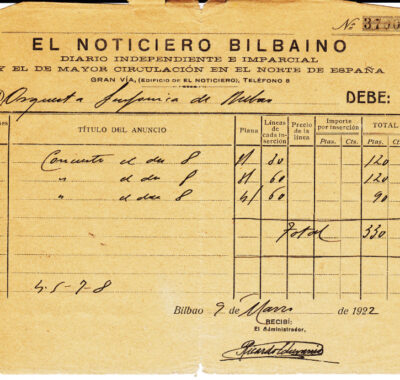 No 3750
EL NOTICIERO BILBAINO
DIARIO INDEPENDIENTE E IMPARCIAL
Y EL DE MAYOR CIRCULACIÓN EN EL NORTE DE ESPAÑA
GRAN VÍA, (EDIFICIO DE EL NOTICIERO), TELÉFONO 8
Orquesta Sinfonica de Bilbao DEBE:
TÍTULO DEL ANUNCIO Plana Líneas de cada inserción Precio de la línea Importe por inserción Ptas. Cts. TOTAL Ptas. C
Concierto el dia 8 30 120
" el dia 8 60 120
" el dia 8 4/ 60 90
Total 330
4-5-7-8
Bilbao 9 de Marzo de 1922
RECIBÍ:
El Administrador,